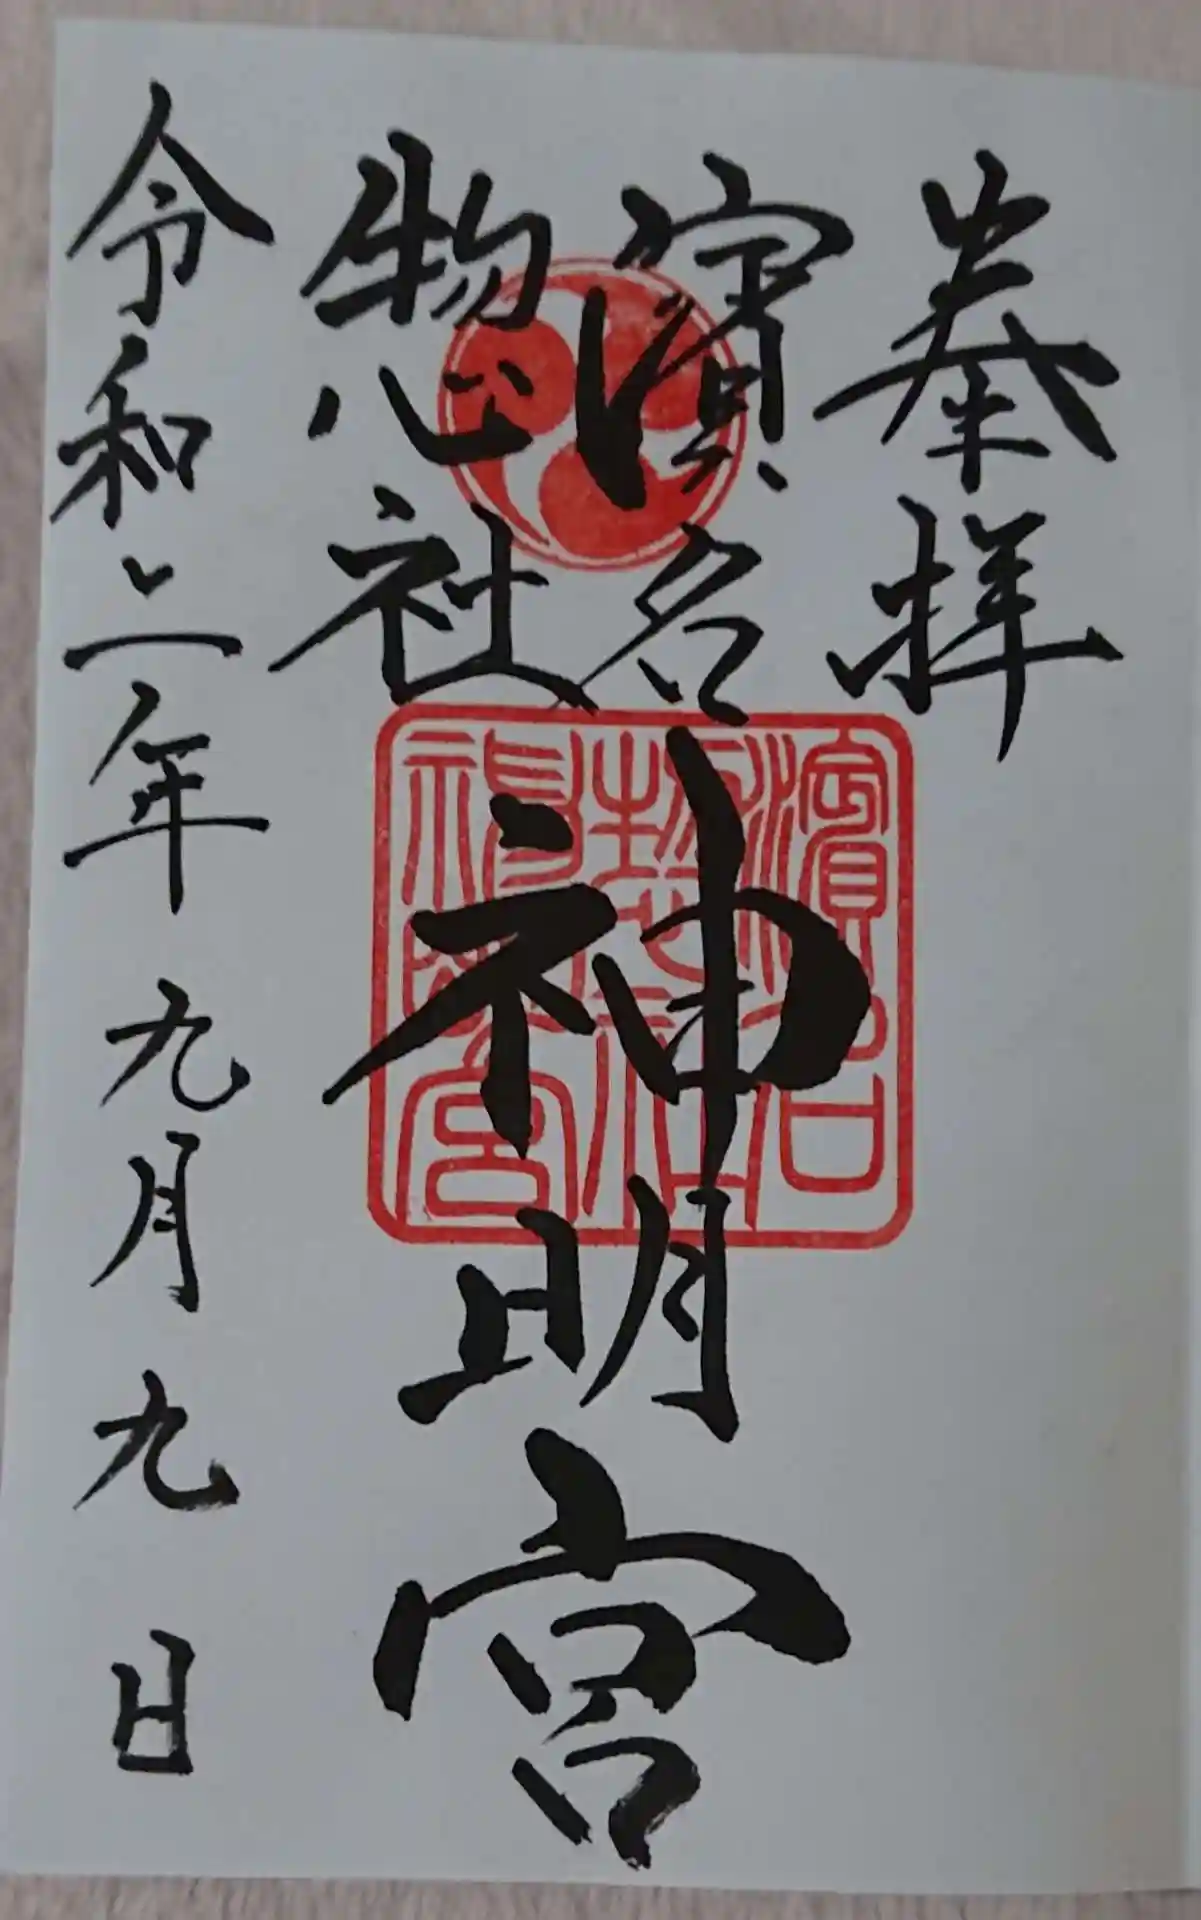 奉拝
濱名
惣社
神明宮
令和二年九月九日
濱名
惣社
神明宮